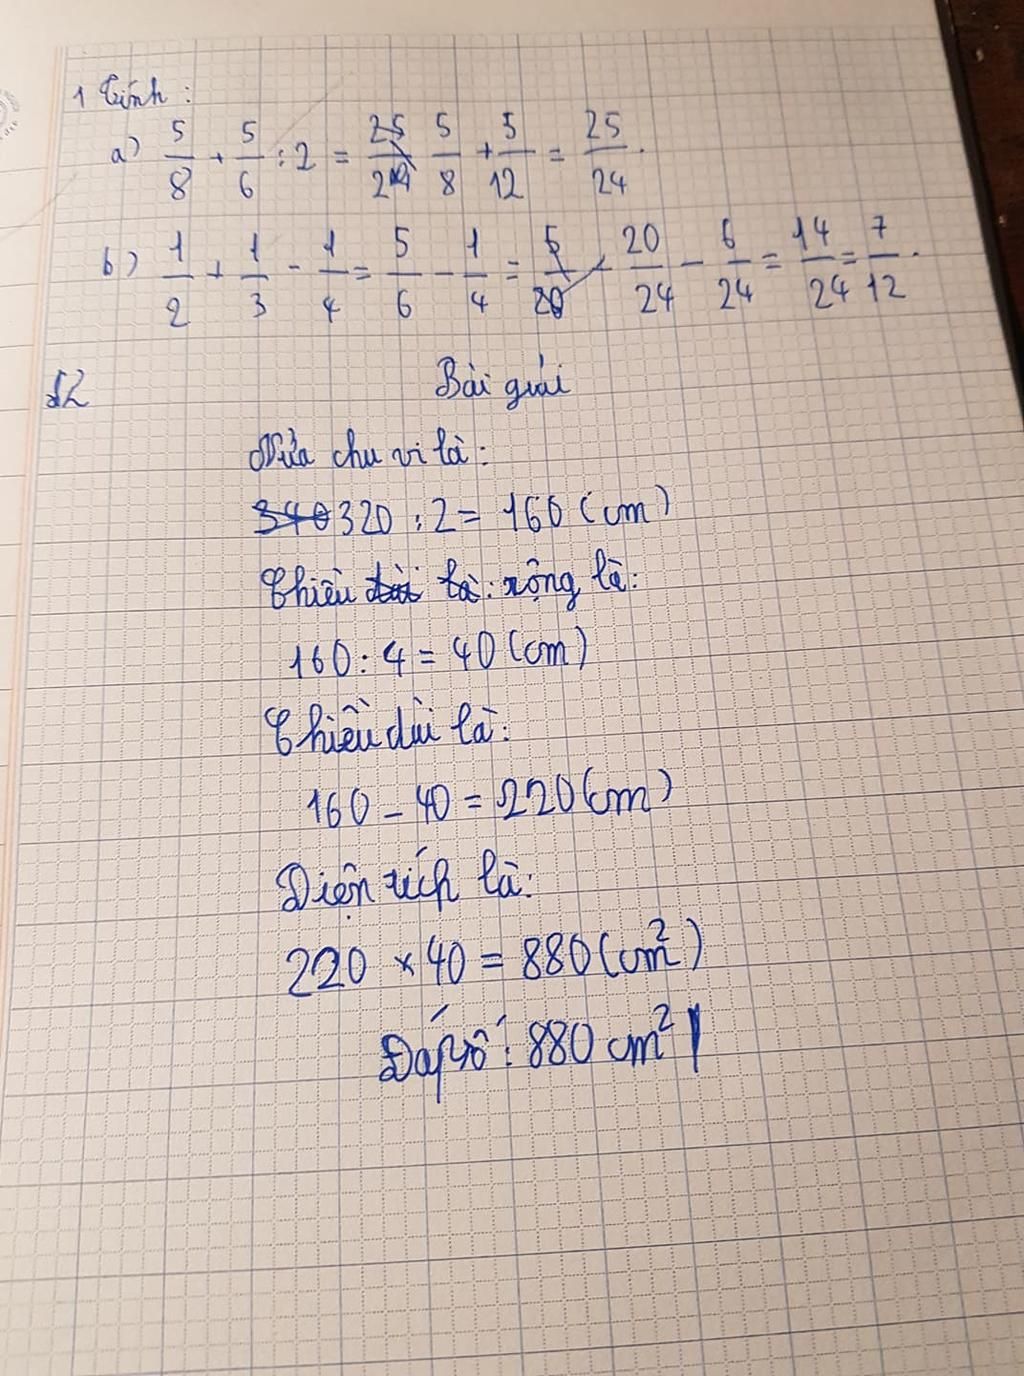 1 Tính:
a) 5/8 + 5/6 : 2 = 25/24 5/8 + 5/12 = 25/24.
b) 1/2 + 1/3 - 1/4 = 5/6 - 1/4 = 5/20 20/24 - 6/24 = 14/24 = 7/12.
12 Bài giải
Nửa chu vi là:
340 320 : 2 = 160 (cm)
Chiều dài là: rộng là:
160 : 4 = 40 (cm)
Chiều dài là:
160 - 40 = 220 (cm)
Diện tích là:
220 × 40 = 880 (cm²)
Đáp số: 880 cm²